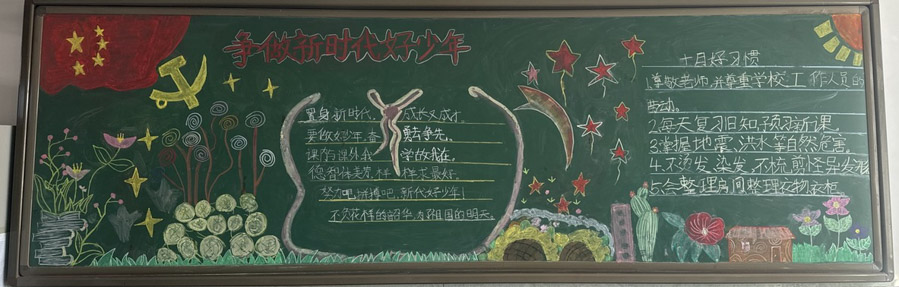 争做新时代好少年
置身新时代,成长又成才。
要做少年,奋勇去争先。
课前课外我学放我在。
德智体美劳,样样求最好。
努力吧,拼搏吧,新时代好少年!
不负花样的韶华 为祖国的明天。
十月好习惯
1.尊敬老师,并尊重学校工作人员的
劳动。
2.每天复习旧知,预习新课。
3.掌握地震,洪水等自然危害。
4.不烫发,染发,不梳剪怪异发
5.会整理房间整理衣物,衣柜。